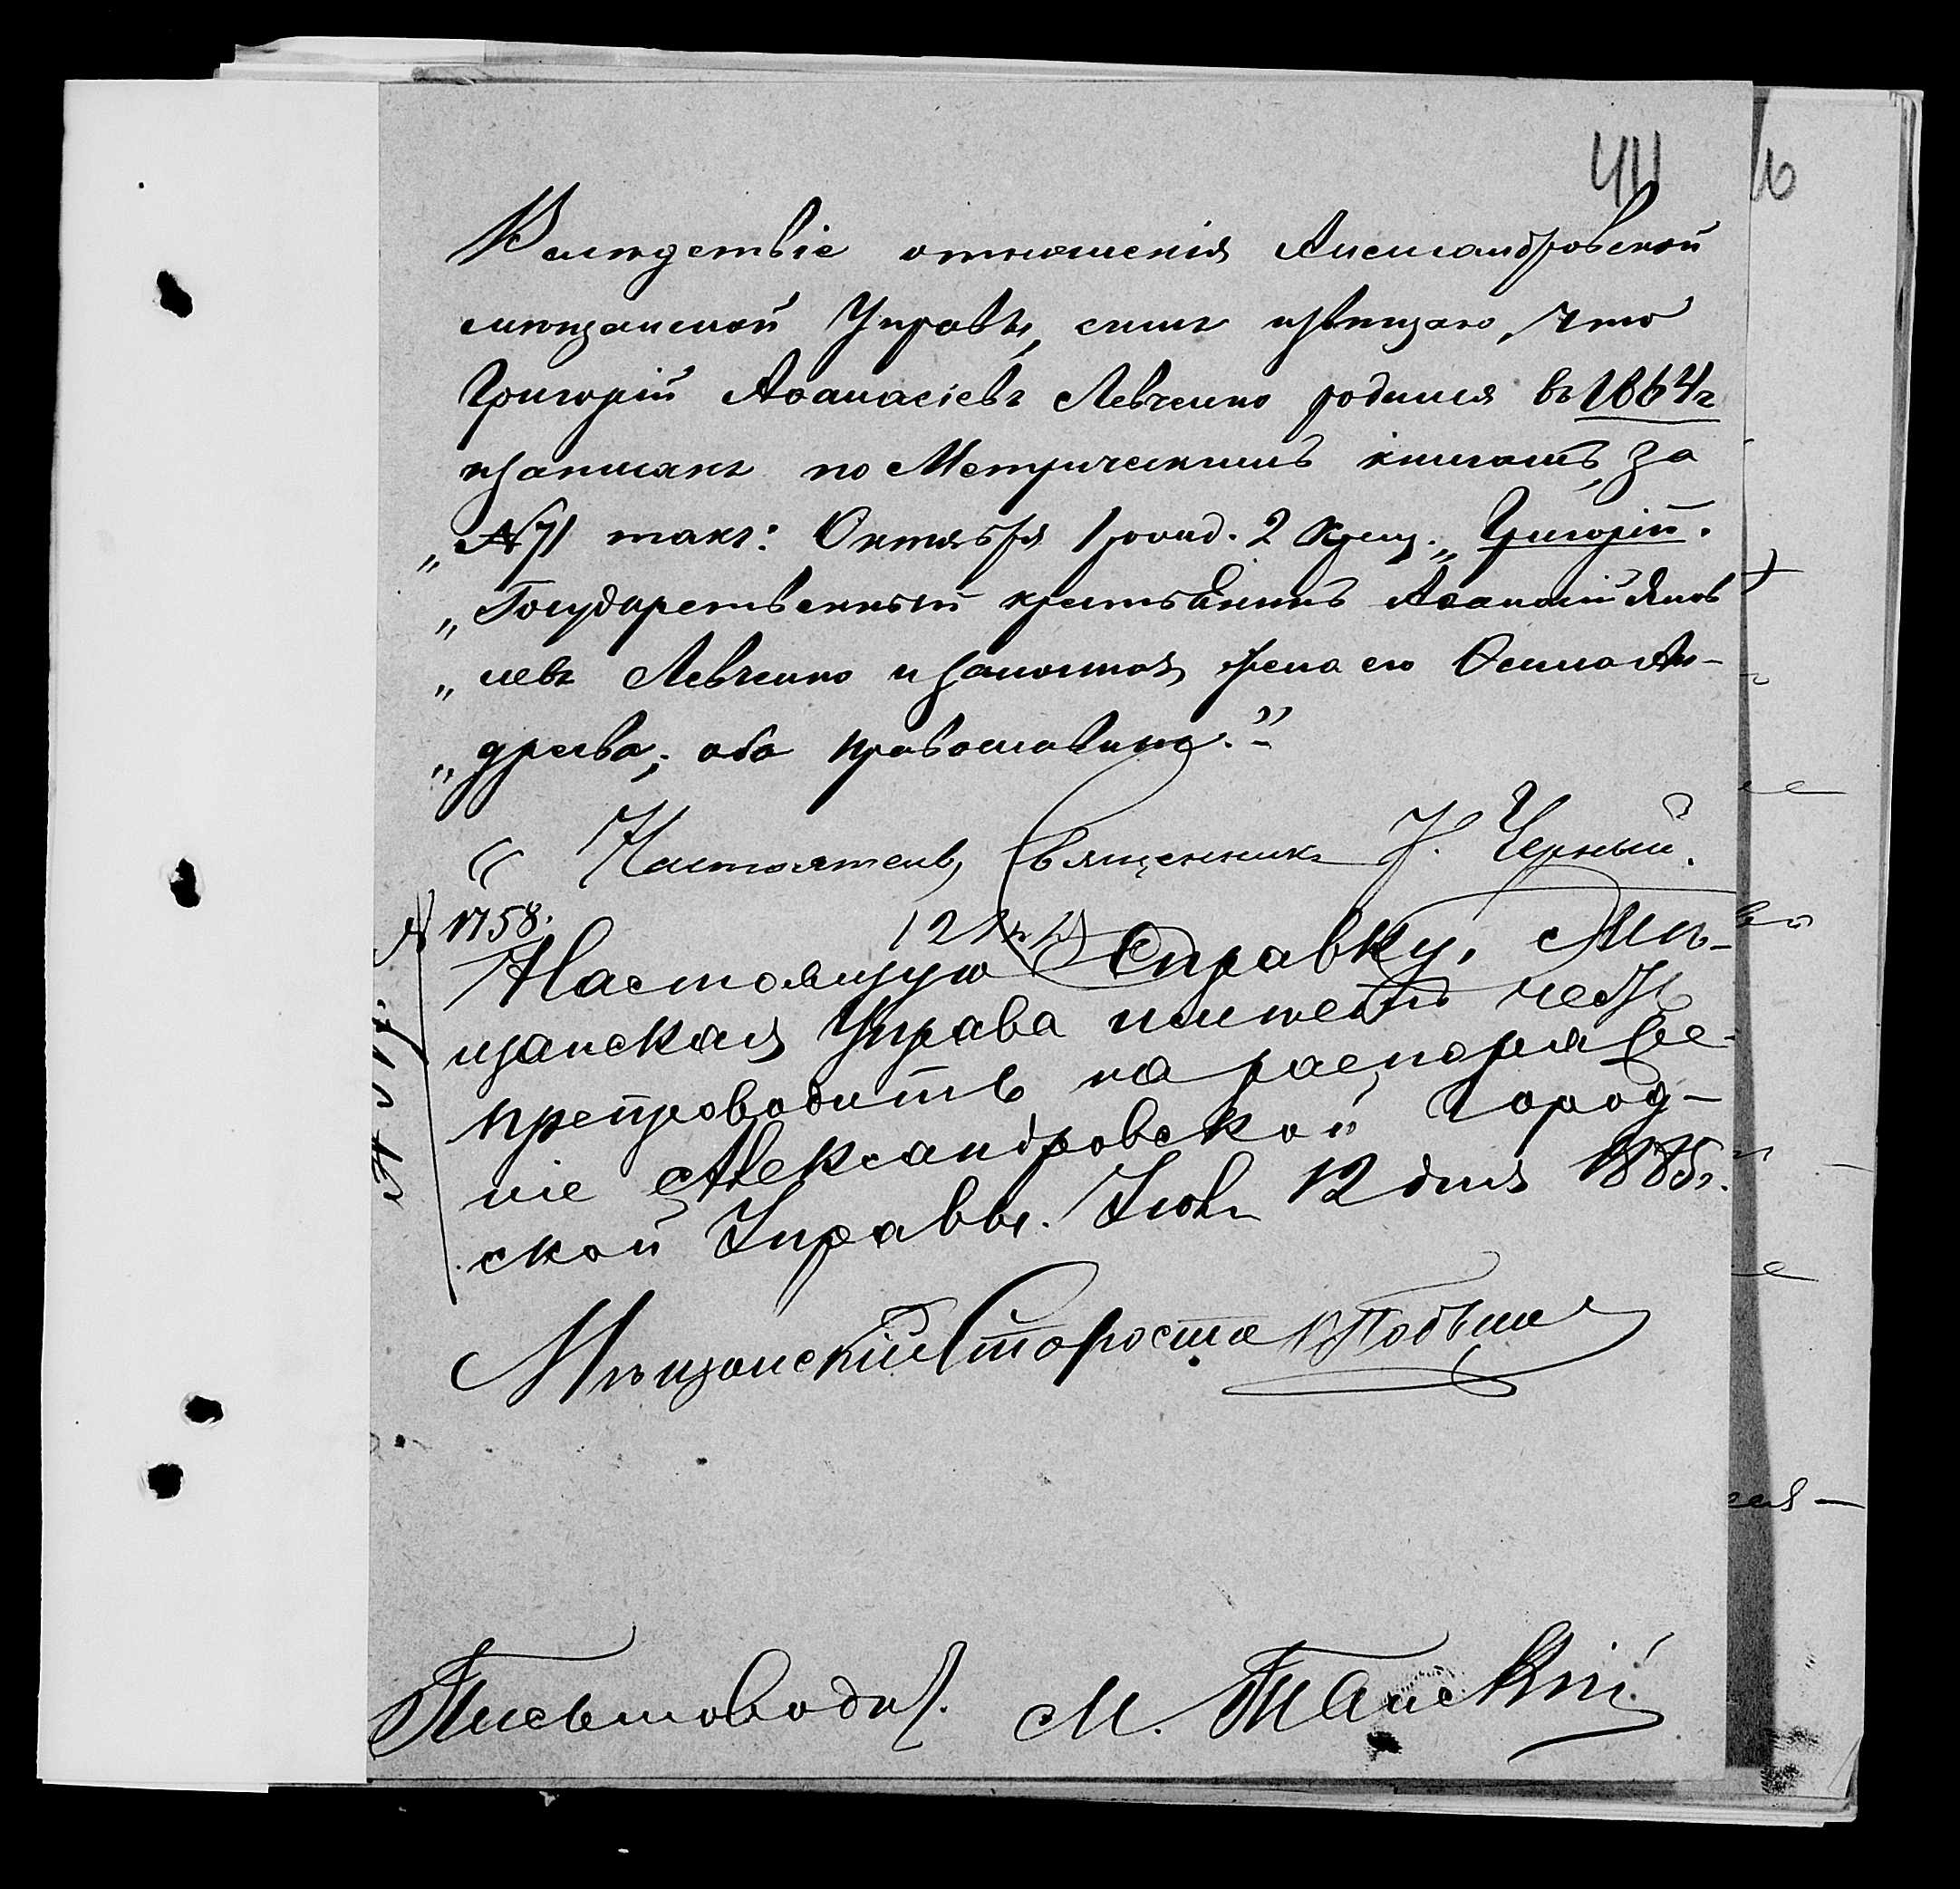 44
Вслѣдствіе отношенія Александровской
мѣщанской Управы, симъ извѣщаю, что
Григорій Аѳанасіевъ Левченко родился въ 1864 г
и записанъ по Метрическимъ книгамъ, за
„№71 такъ: Октября 1 рожд. 2 крещ. „Григорій.
„Государственный крестьянинъ Аѳанасій Яков
„левъ Левченко и законная жена его Осина Ан-
„дреева; оба православные."
Настоятель, Священникъ Черный.
№ 1758.
Настоящую Справку, Мѣ-
щанская Управа имѣетъ честь
препроводить на распоряже-
ніе Александровской Город-
ской Управы. Іюля 12 дня 1885 г.
Мѣщанскій Староста
Письмовод. М.